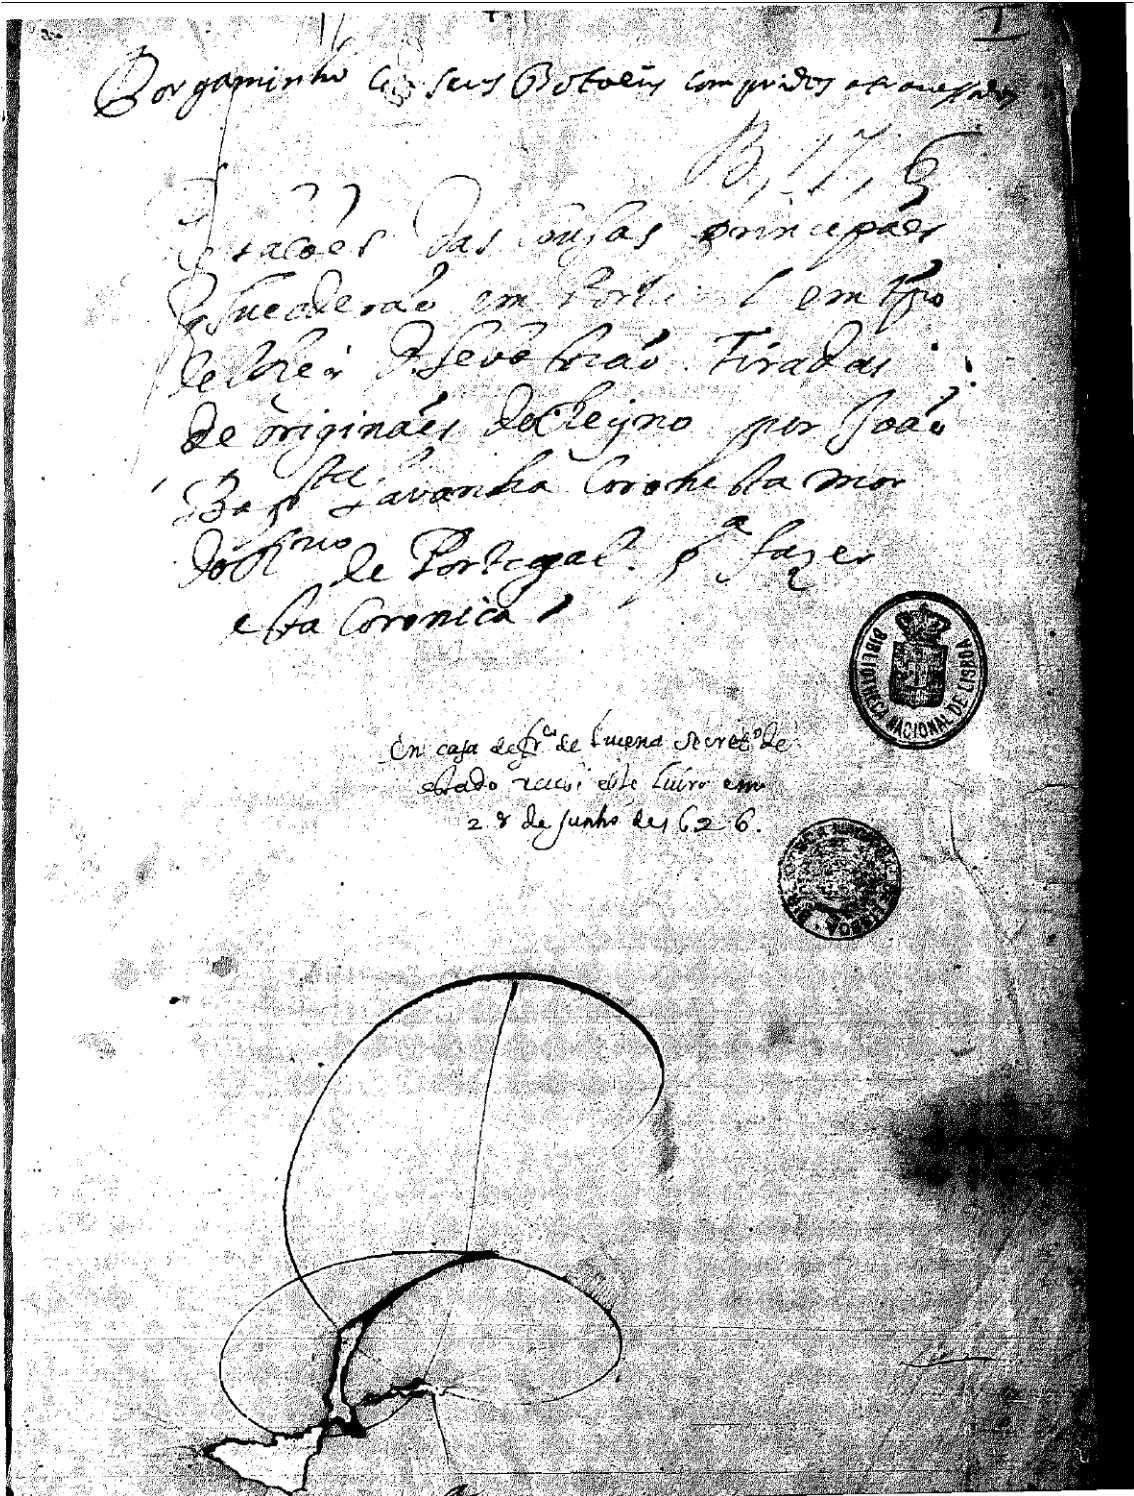 I
Borgaminho seus Botoeins compridos atravessados
B, 17, 6
Relacões das cousas principaes
q sucederão em Portugal em tpo
del Rei D. Sebastião Tiradas
de originaes do Reyno por João
Bapta Lavanha Coronista mor
do Rno de Portugal. pa fazer
esta Coronica
BIBLIOTHECA NACIONAL DE LISBOA
En casa de Frco de Lucena secretro de
estado recebi este livro em
28 de Junho de 1626.